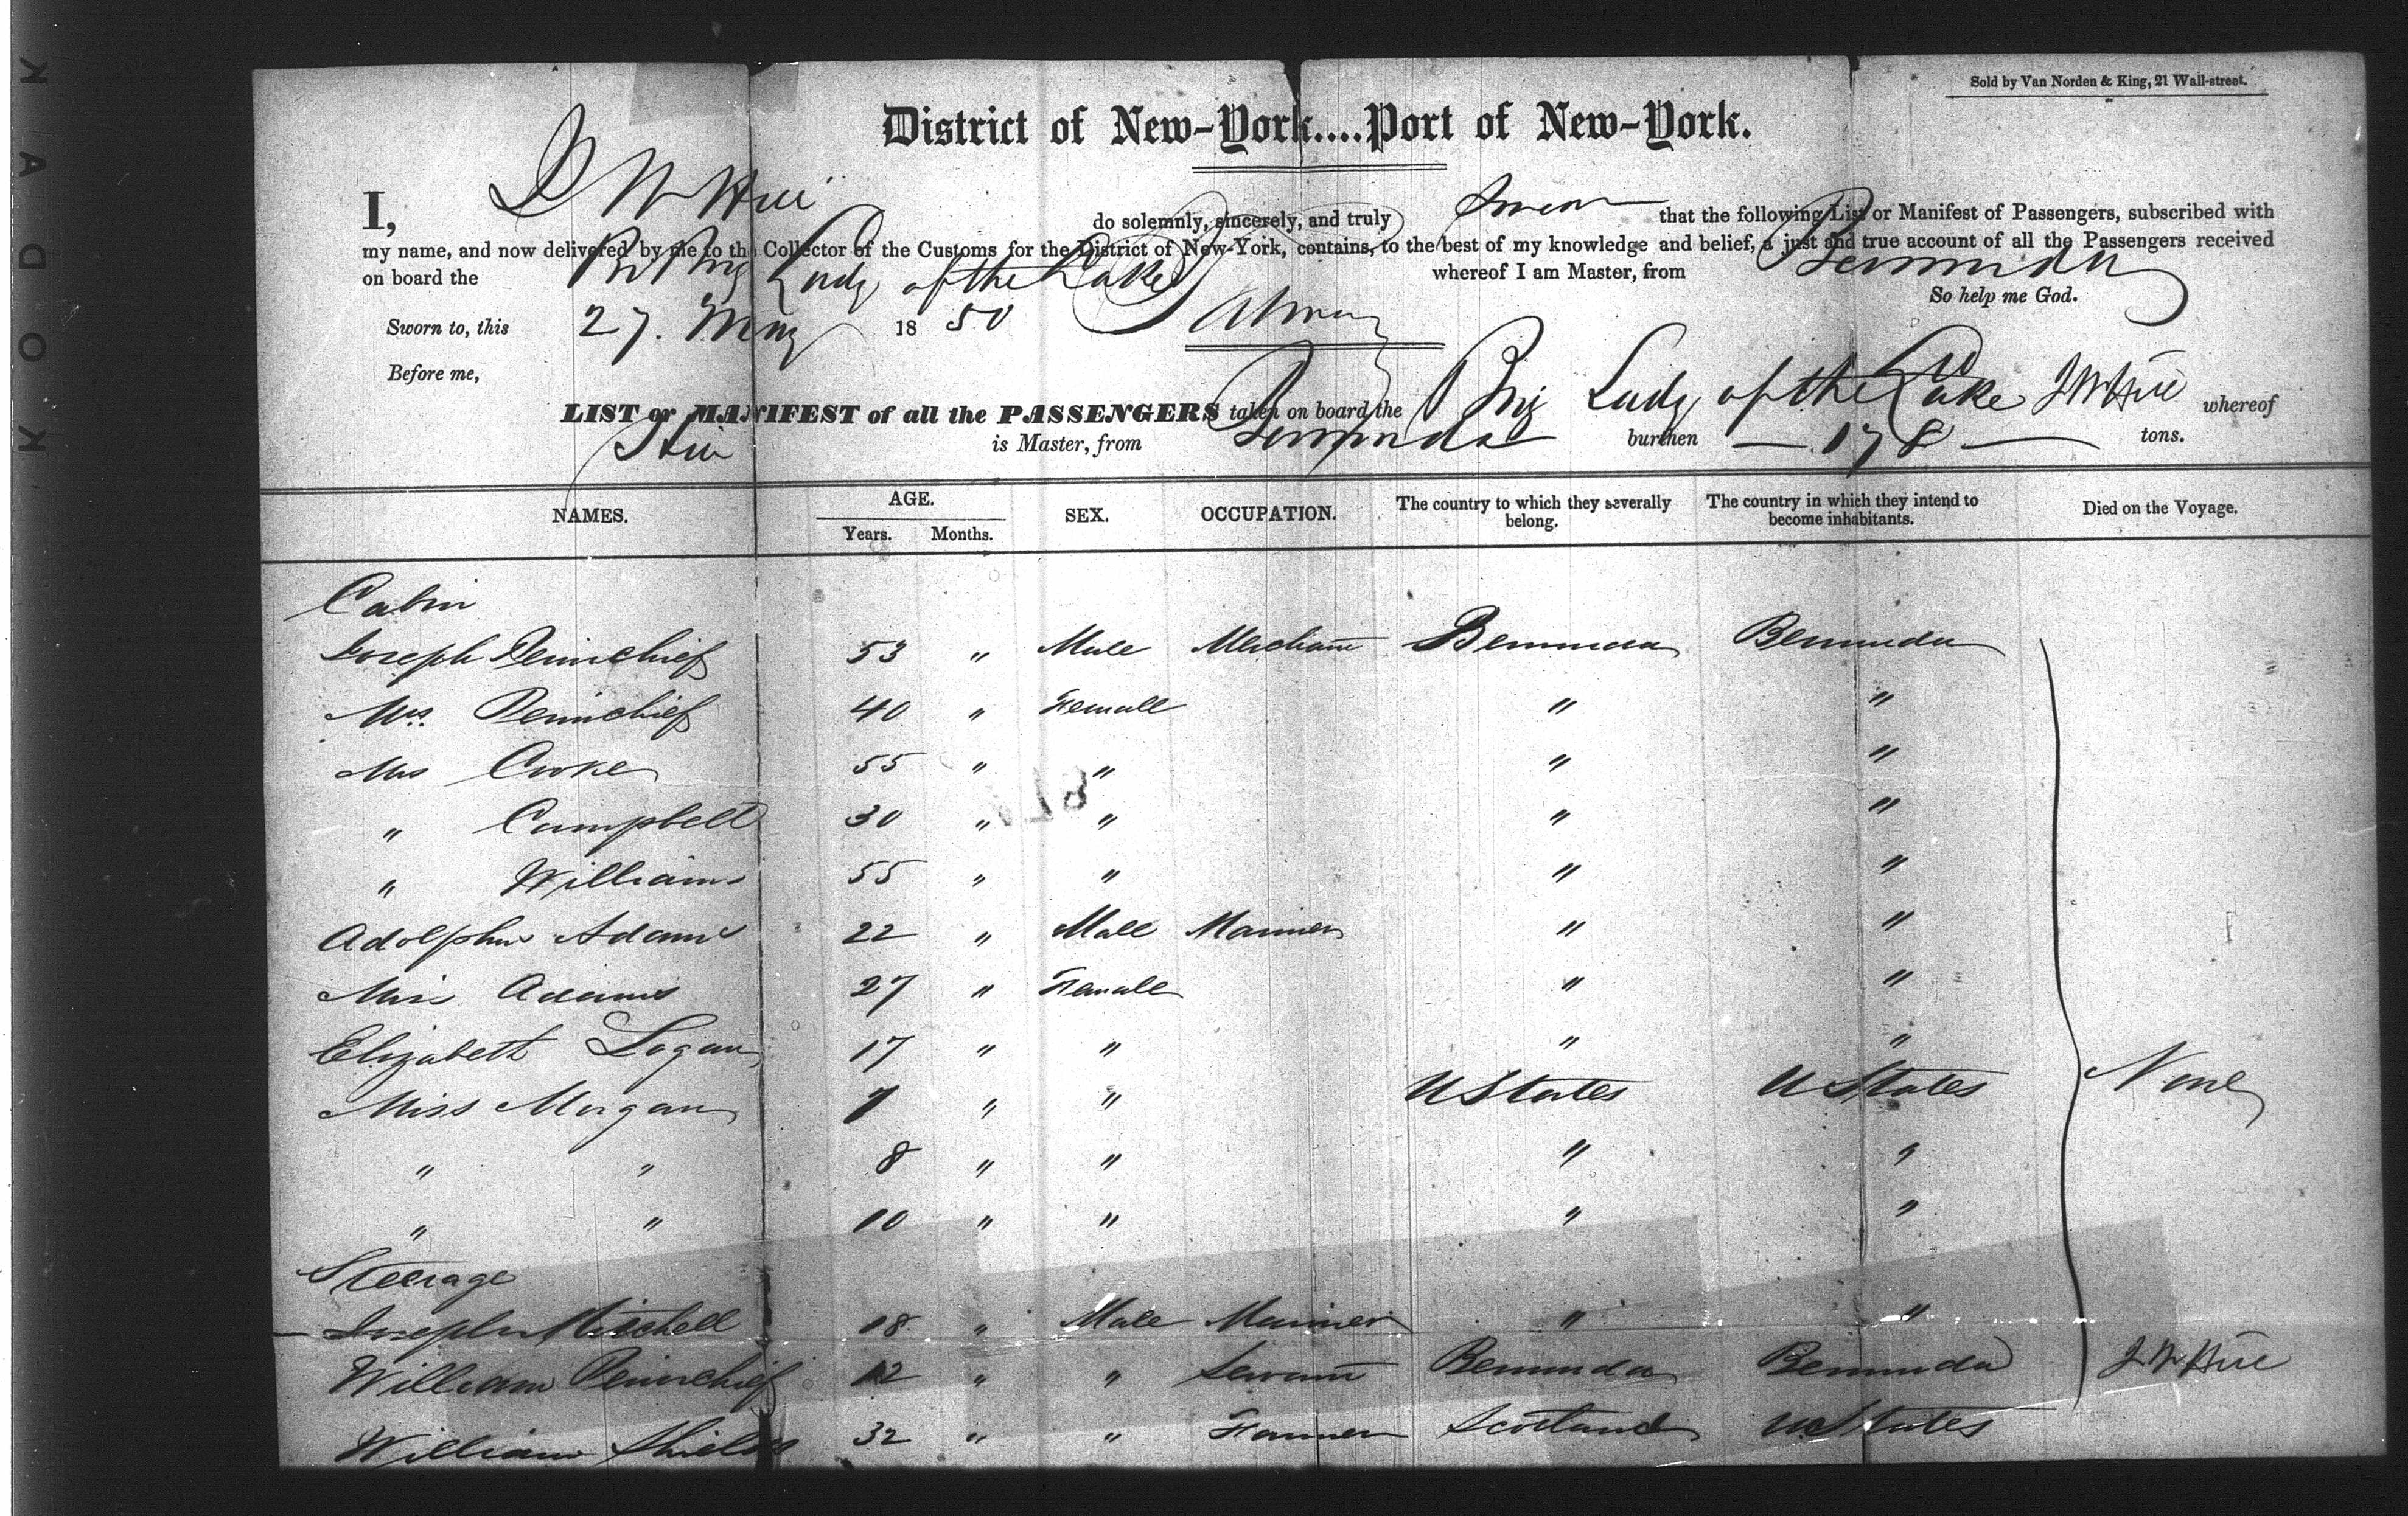 KODAK
Sold by Van Norden & King, 21 Wall-street.
District of New-York....Port of New-York.
I, do solemnly, sincerely, and truly Swear that the following List or Manifest of Passengers, subscribed with
my name, and now delivered by me to the Collector of the Customs for the District of New-York, contains, to the best of my knowledge and belief, a just and true account of all the Passengers received
on board the Br Brig Lady of the Lake whereof I am Master, from Bermuda
So help me God.
Sworn to, this 27. May 1850
Before me,
LIST or MANIFEST of all the PASSENGERS taken on board the Brig Lady of the Lake whereof
is Master, from Bermuda burthen 178 tons.
NAMES. AGE. SEX. OCCUPATION. The country to which they severally belong. The country in which they intend to become inhabitants. Died on the Voyage.
Years. Months.
Cabin
Joseph Penischief 53 " Male Merchant Bermuda Bermuda
Mrs. Penischief 40 " Female " "
Mrs Cooke 55 " " " "
" Campbell 30 " " " "
" Williams 55 " " " "
Adolphus Adams 22 " Male Mariner " "
Miss Adams 27 " Female " "
Elizabeth Logan 17 " " " "
Miss Morgan 7 " " U States U States None
" " 8 " " " "
" " 10 " " " "
Steerage
Joseph Mitchell 18 " Male Mariner " "
William Penischief 12 " " Servant Bermuda Bermuda
William Shields 32 " " Farmer Scotland U States